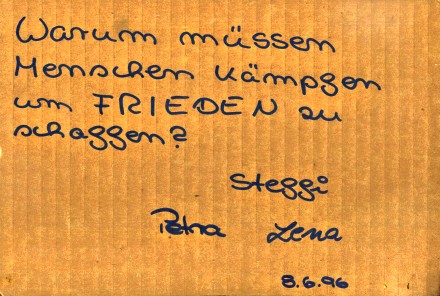 Warum müssen
Menschen kämpfen
um FRIEDEN zu
schaffen?
Steffi
Petra Lena
8.6.96